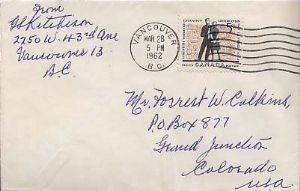 From
2250 W. 43rd Ave
Vancouver 13
B.C.
VANCOUVER
MAR 28
5 PM
1962
B.C.
5
CANADA
Mr. Forrest W. Calkins,
P.O. Box 877
Grand Junction
Colorado
USA